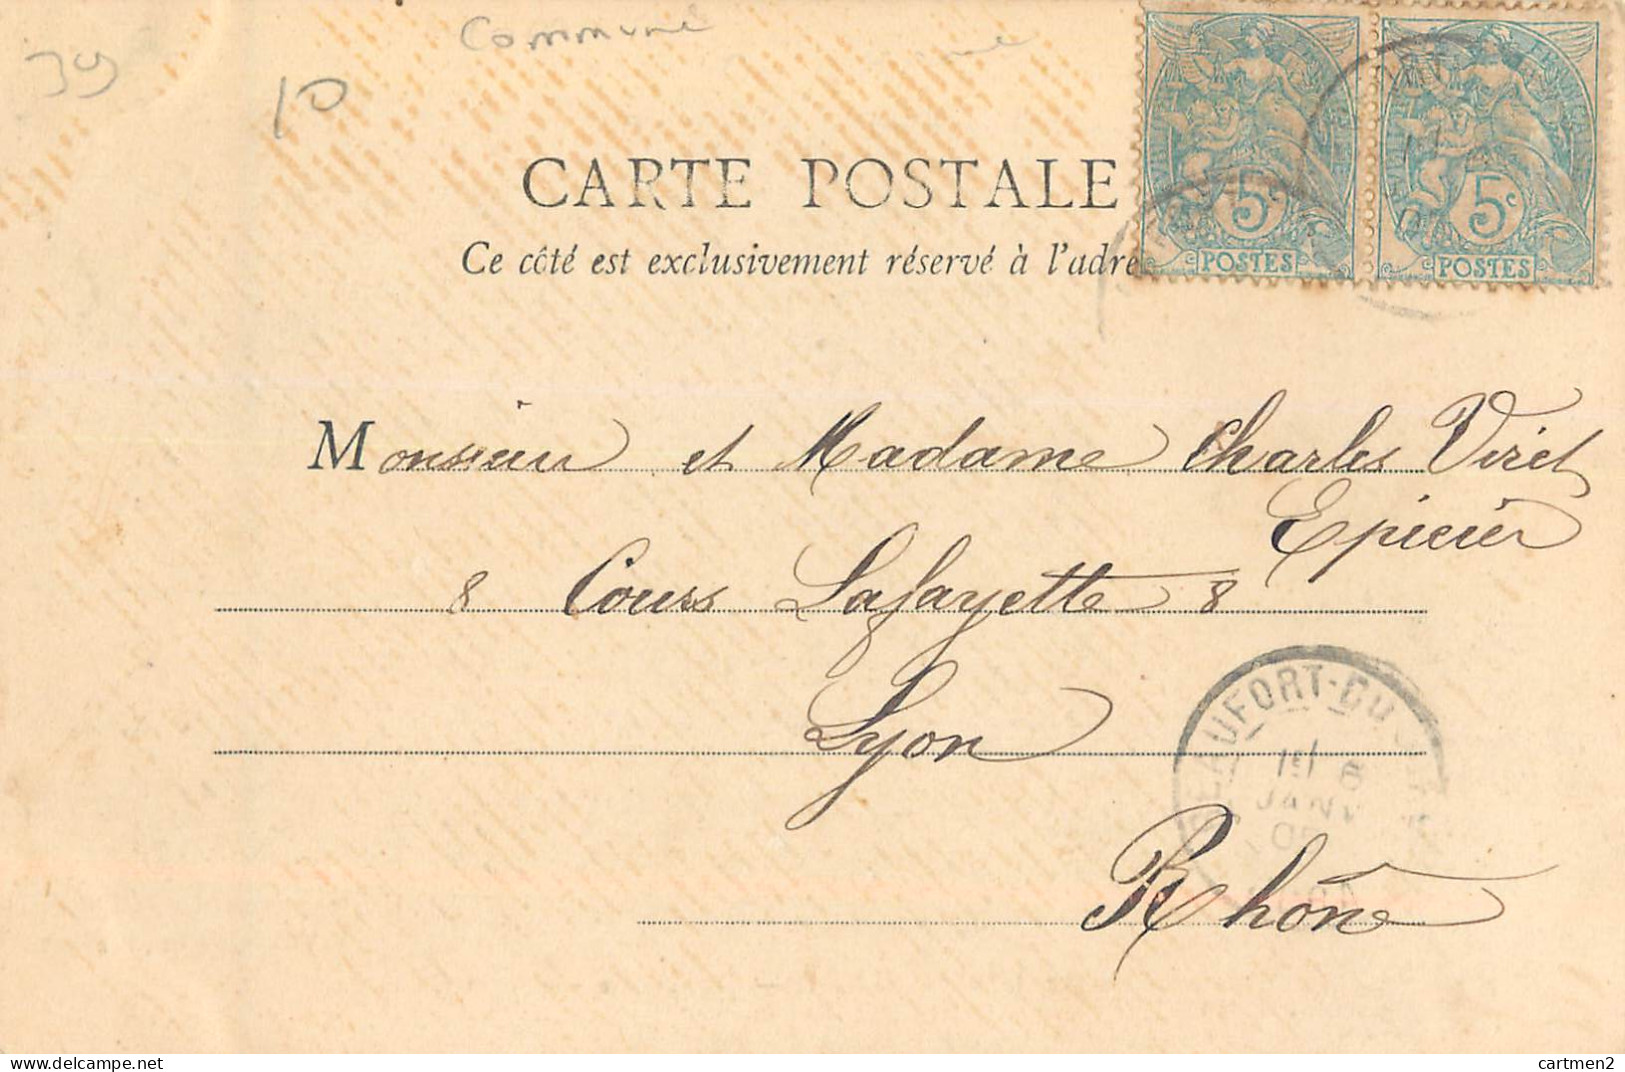 39
10
Commune
CARTE POSTALE
Ce côté est exclusivement réservé à l'adre
5c
POSTES
5c
POSTES
Monsieur et Madame Charles Viret
Epicier
8 Cours Lafayette 8
Lyon
Rhône
BEAUFORT-DU-
JANV
cartmen2
delcampe.net